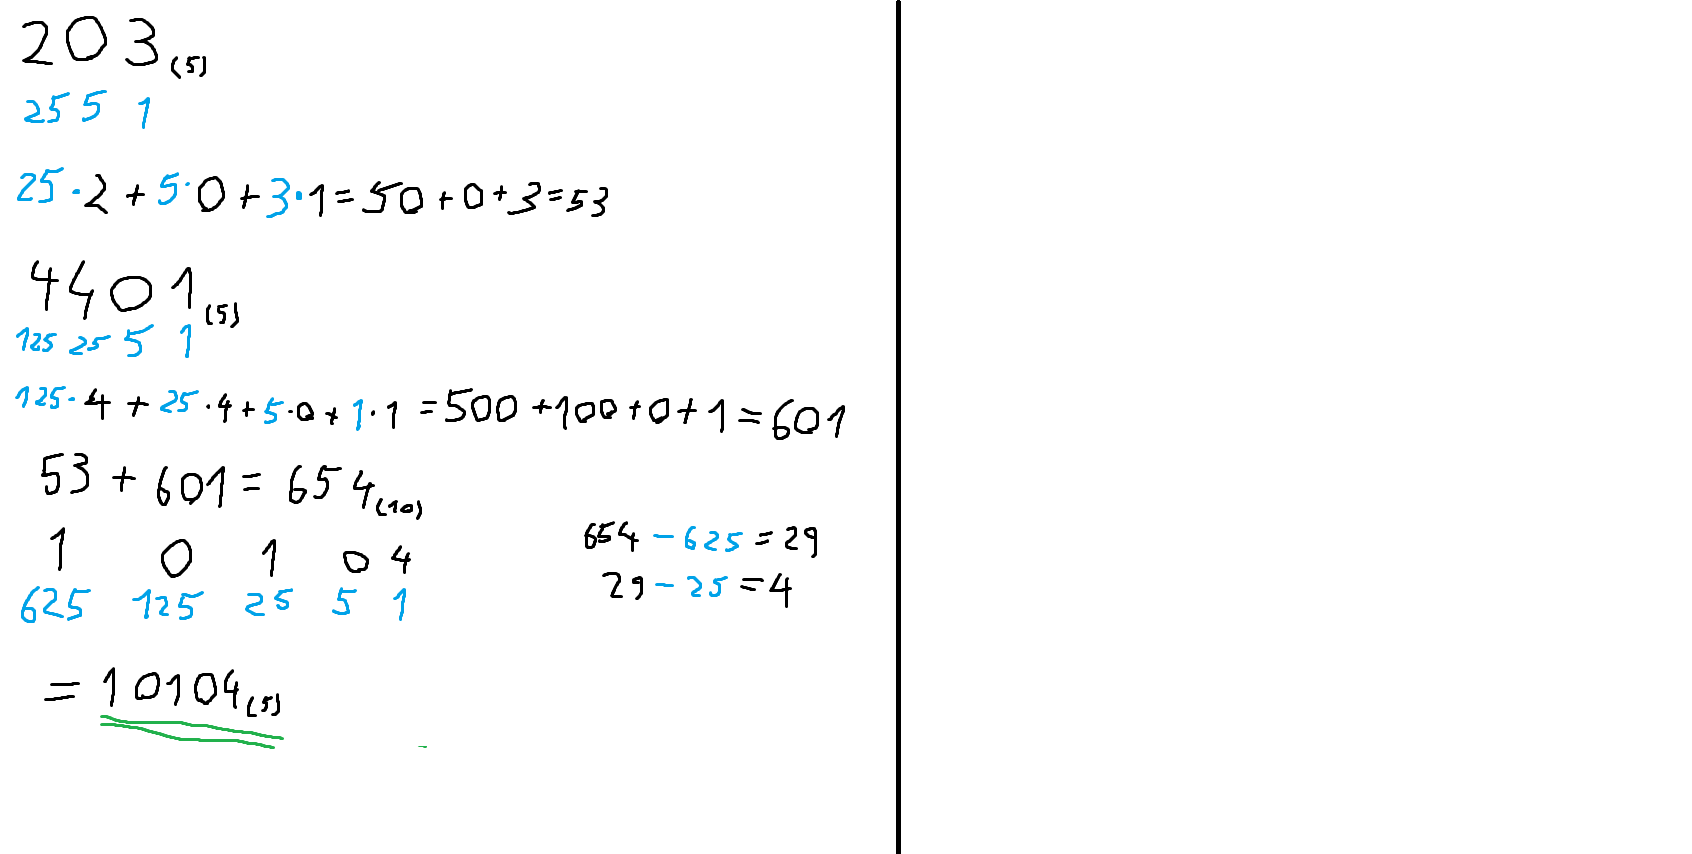 203(5)
25 5 1
25·2+5·0+3·1=50+0+3=53
4401(5)
125 25 5 1
125·4+25·4+5·0+1·1=500+100+0+1=601
53+601=654(10)
1 0 1 0 4
625 125 25 5 1
654-625=29
29-25=4
=10104(5)